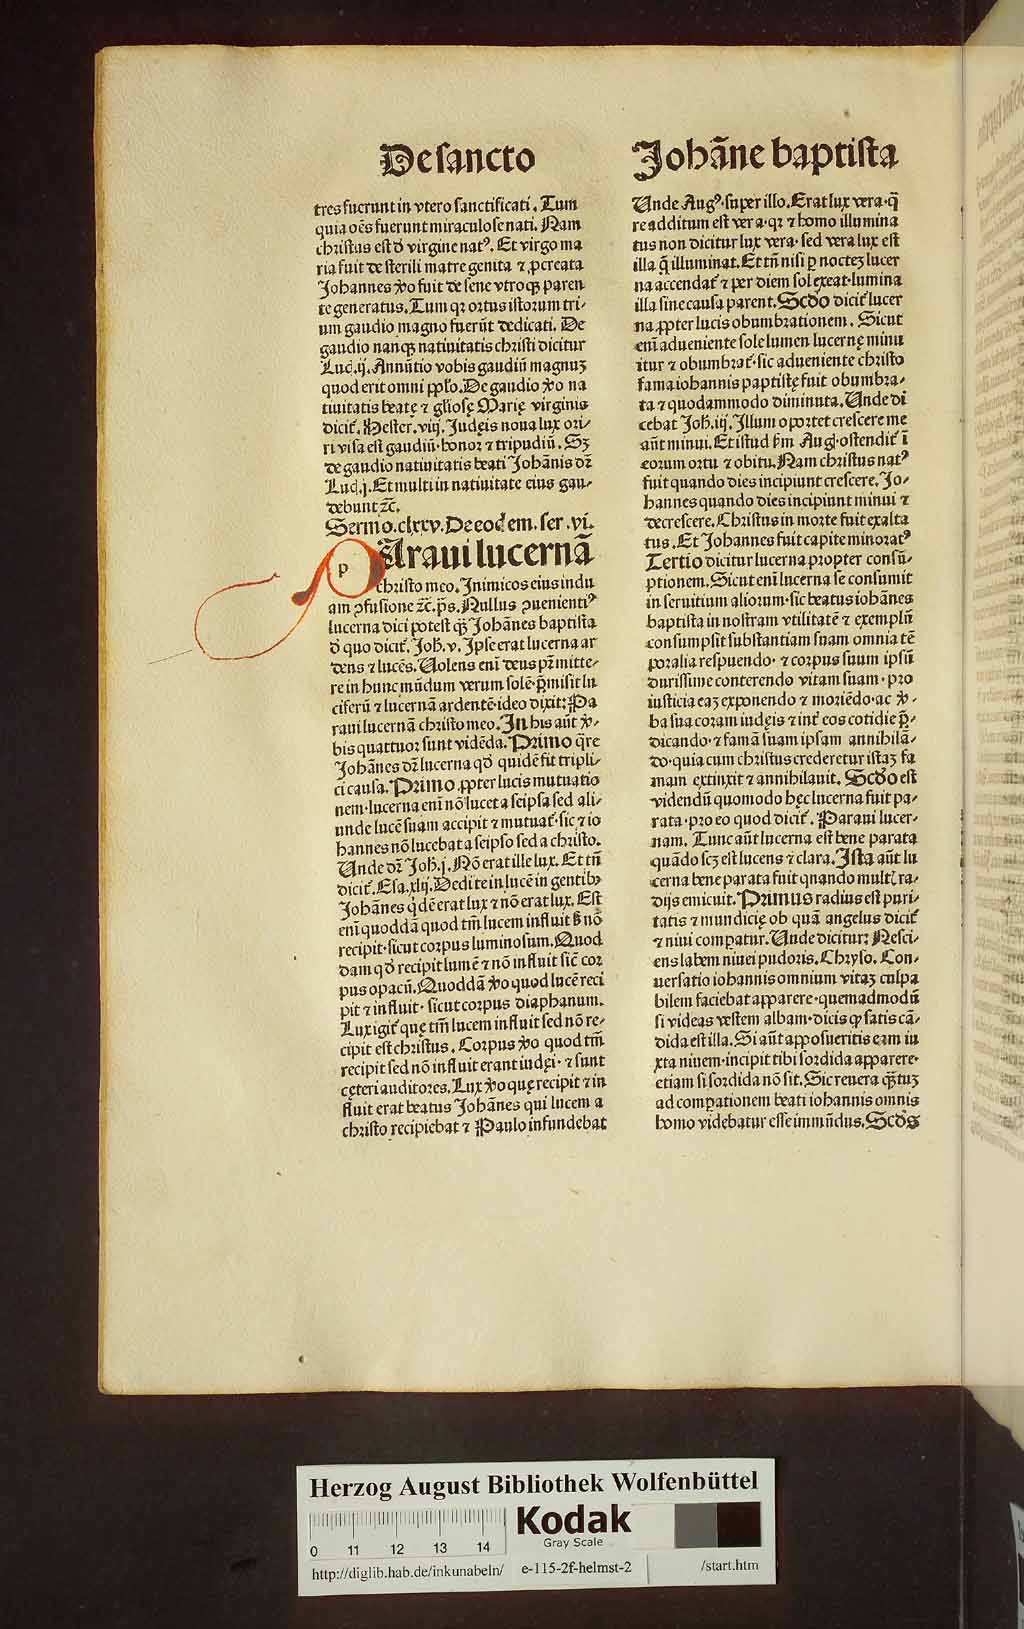 De sancto
tres fuerunt in vtero sanctificati. Tum
quia oēs fuerunt miraculose nati. Nam
christus est ď virgine natꝰ. Et virgo ma
ria fuit de sterili matre genita ⁊ ꝓcreata
Johannes ꝟo fuit de sene vtroqꝫ paren
te generatus. Tum qꝛ ortus istorum tri⸗
um gaudio magno fuerūt dedicati. De
gaudio nanqꝫ natiuitatis christi dicitur
Luc̄.ij. Annūtio vobis gaudiū magnuꝫ
quod erit omni ppl̓o. De gaudio ꝟo na
tiuitatis beatę ⁊ gl̓iosę Marię virginis
dicit̉. Hester. viij. Judęis noua lux ori⸗
ri visa est gaudiū·honor ⁊ tripudiū. Sꝫ
de gaudio natiuitatis beati Johānis dꝛ̄
Luc̄.j. Et multi in natiuitate eius gau⸗
debunt ⁊c̄.
Sermo.clxxv. De eodem. ser. vi.
p
Araui lucernā
christo meo. Inimicos eius indu
am ↄfusione ⁊c̄. p̄s. Nullus ↄuenientiꝰ
lucerna dici potest qꝫ̄ Johānes baptista
ď quo dicit̉. Joh̄. v. Ipse erat lucerna ar
dens ⁊ lucēs. Uolens eni̅ deus pꝛ̄mitte⸗
re in hunc mūdum verum solē·p̄misit lu
ciferū ⁊ lucernā ardentē·ideo dixit: Pa
raui lucernā christo meo. In his aūt ꝟ⸗
bis quattuor sunt vidēda. Primo q̄re
Johānes dꝛ̄ lucerna qď quidē fit tripli⸗
ci causa. Primo ꝓpter lucis mutuatio
nem·lucerna eni̅ nō lucet a seipsa sed ali⸗
unde lucē suam accipit ⁊ mutuat̉·sic ⁊ io
hannes nō lucebat a seipso sed a christo.
Unde dꝛ̄ Joh̄.j. Nō erat ille lux. Et tn̄
dicit̉. Esa.xlij. Dedi te in lucē in gentibꝫ
Johānes q̇dē erat lux ⁊ nō erat lux. Est
eni̅ quoddā quod tm̄ lucem influit ꝫ nō
recipit·sicut corpus luminosum. Quod
dam qď recipit lumē ⁊ nō influit sic̄ cor
pus opacū. Quoddā ꝟo quod lucē reci
pit ⁊ influit·sicut corpus diaphanum.
Lux igit̉ quę tm̄ lucem influit sed nō re⸗
cipit est christus. Corpus ꝟo quod tm̄
recipit sed nō influit erant iudęi·⁊ sunt
cęteri auditores. Lux ꝟo quę recipit ⁊ in
fluit erat beatus Johānes qui lucem a
christo recipiebat ⁊ Paulo infundebat
Johāne baptista
Unde Augꝰ·super illo. Erat lux vera·q̄
re additum est vera·qꝛ ⁊ homo illumina
tus non dicitur lux vera·sed vera lux est
illa q̄ illuminat. Et tn̄ nisi ꝑ nocteꝫ lucer
na accendat̉ ⁊ per diem sol exeat·lumina
illa sine causa parent. Scďo dicit̉ lucer
na ꝓpter lucis obumbrationem. Sicut
eni̅ adueniente sole lumen lucernę minu
itur ⁊ obumbrat̉·sic adueniente christo
fama iohannis paptistę fuit obumbra⸗
ta ⁊ quodammodo diminuta. Unde di
cebat Joh̄.iij. Illum oportet crescere me
aūt minui. Et istud ẜm Aug̉·ostendit̉ ī
eorum ortu ⁊ obitu. Nam christus natꝰ
fuit quando dies incipiunt crescere. Jo⸗
hannes quando dies incipiunt minui ⁊
decrescere. Christus in morte fuit exalta
tus. Et Johannes fuit capite minoratꝰ
Tertio dicitur lucerna propter consū⸗
ptionem. Sicut eni̅ lucerna se consumit
in seruitium aliorum·sic beatus iohānes
baptista in nostram vtilitatē ⁊ exemplū
consumpsit substantiam suam omnia tē
poralia respuendo·⁊ corpus suum ipsū
durissime conterendo vitam suam·pro
iusticia eaꝫ exponendo ⁊ moriēdo·ac ꝟ⸗
ba sua coram iudęis ⁊ int̉ eos cotidie p̄⸗
dicando·⁊ famā suam ipsam annihilā⸗
do·quia cum christus crederetur istaꝫ fa
mam extinxit ⁊ annihilauit. Scďo est
videndū quomodo hęc lucerna fuit pa⸗
rata·pro eo quod dicit̉. Paraui lucer⸗
nam. Tunc aūt lucerna est bene parata
quādo scꝫ est lucens ⁊ clara. Ista aūt lu
cerna bene parata fuit quando mult̉ ra⸗
dijs emicuit. Primus radius est puri⸗
tatis ⁊ mundicię ob quā angelus dicit̉
⁊ niui comꝑatur. Unde dicitur: Nesci⸗
ens labem niuei pudoris. Chryso. Con⸗
uersatio iohannis omnium vitaꝫ culpa
bilem faciebat apparere·quemadmodū
si videas vestem albam·dicis ꝙ satis cā⸗
dida est illa. Si aūt apposueritis eam iu
xta niuem·incipit tibi sordida apparere·
etiam si sordida nō sit. Sic reuera qꝫ̄tuꝫ
ad comꝑationem beati iohannis omnis
homo videbatur esse immūdus. Scďs
Herzog August Bibliothek Wolfenbüttel
Kodak
Gray Scale
0 11 12 13 14
http://diglib.hab.de/inkunabeln/ e-115-2f-helmst-2 /start.htm